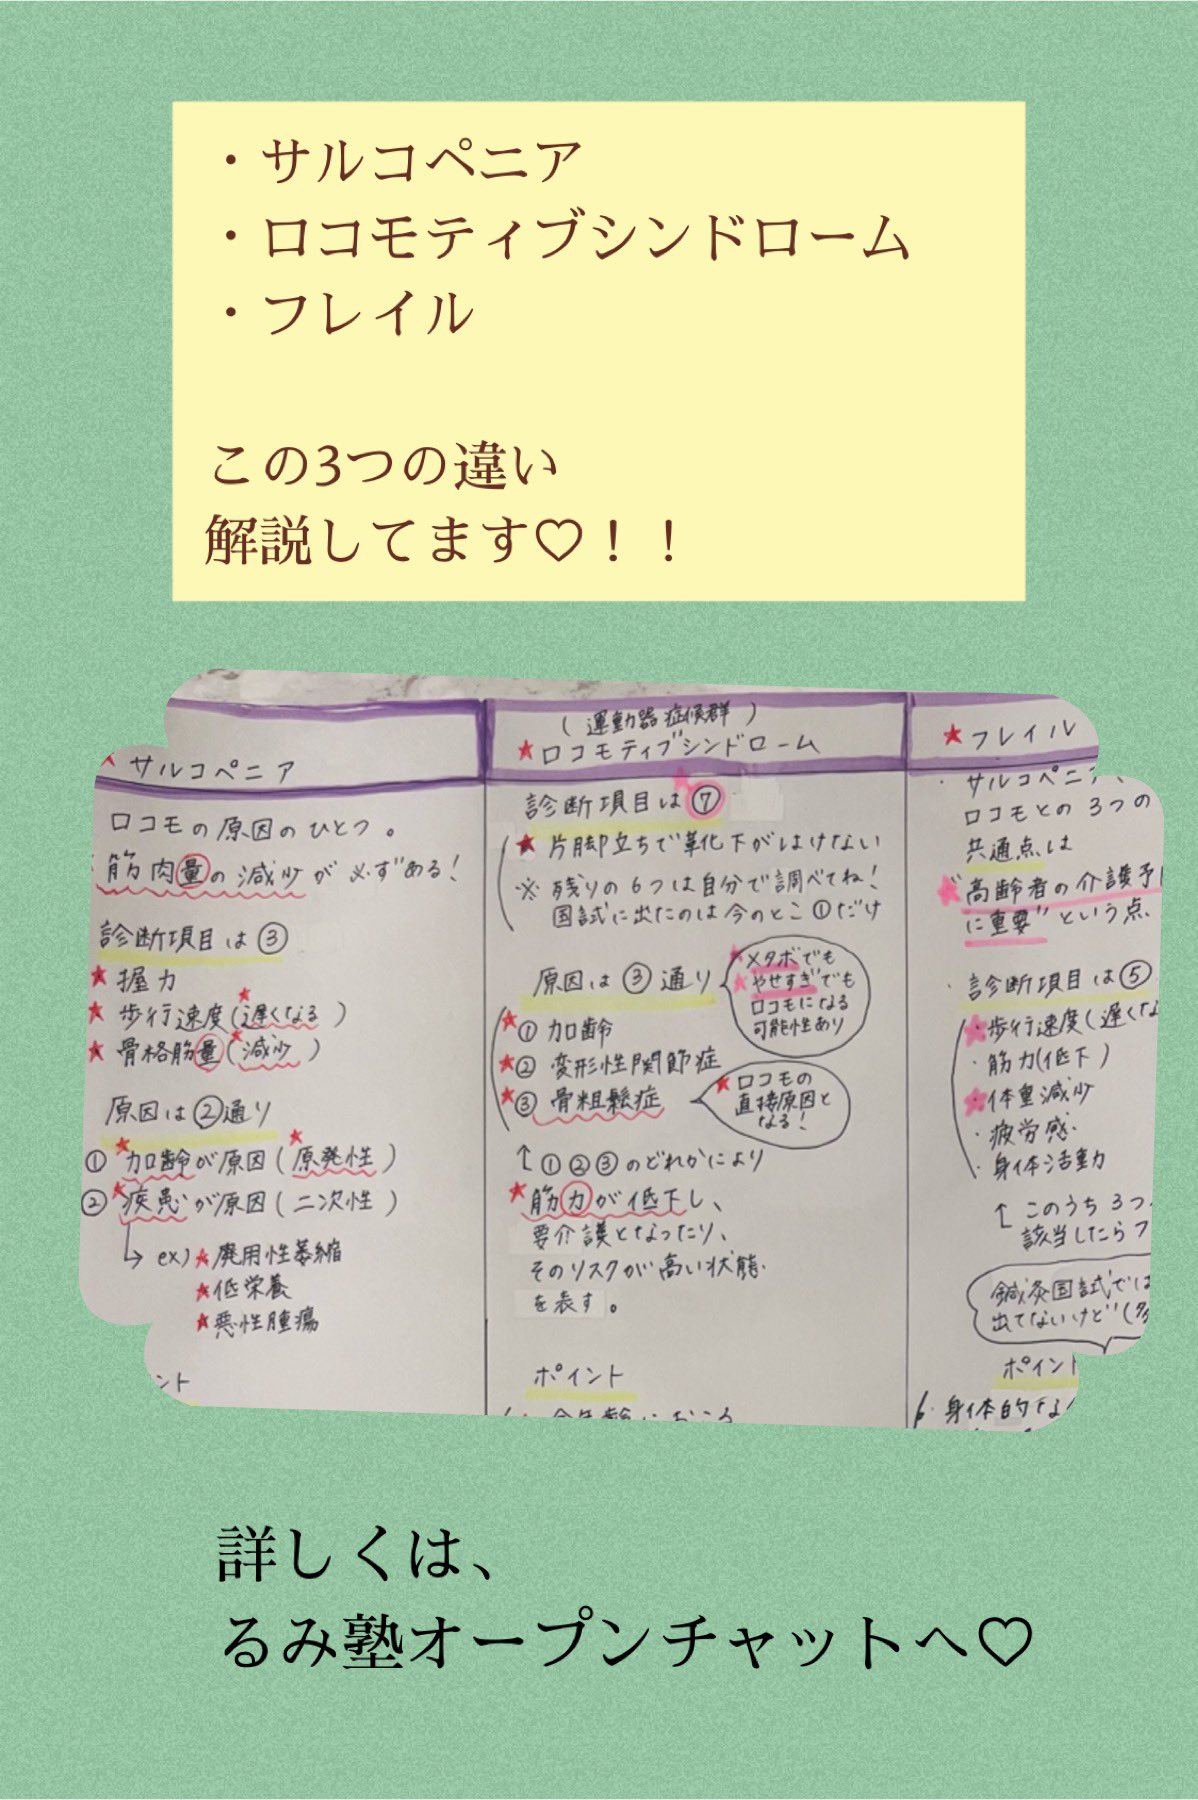 ・サルコペニア
・ロコモティブシンドローム
・フレイル
この3つの違い
解説してます♡！！
★サルコペニア
ロコモの原因のひとつ。
筋肉量の減少が必ずある!
診断項目は③
★握力
★歩行速度(★遅くなる)
★骨格筋量(★減少)
原因は②通り
①★加齢が原因(★原発性)
②★疾患が原因(二次性)
↳ ex)★廃用性萎縮
★低栄養
★悪性腫瘍
ント
(運動器症候群)
★ロコモティブシンドローム
診断項目は⑦
★片脚立ちで靴下がはけない
※残りの6つは自分で調べてね!
国試に出たのは今のとこ①だけ
原因は③通り
★メタボでも
★やせすぎでも
ロコモになる
可能性あり
★①加齢
★②変形性関節症
★③骨粗鬆症
★ロコモの
直接原因と
なる!
↑①②③のどれかにより
★筋力が低下し、
要介護となったり、
そのリスクが高い状態
を表す。
ポイント
★フレイル
・サルコペニア、
ロコモとの3つの
共通点は
★"高齢者の介護予
に重要"という点、
・診断項目は⑤
★歩行速度(遅くな
・筋力(低下)
★体重減少
・疲労感
・身体活動
↑このうち3つ
該当したらフ
鍼灸国試では
出てないけど
ポイント
・身体的な
詳しくは、
るみ塾オープンチャットへ♡